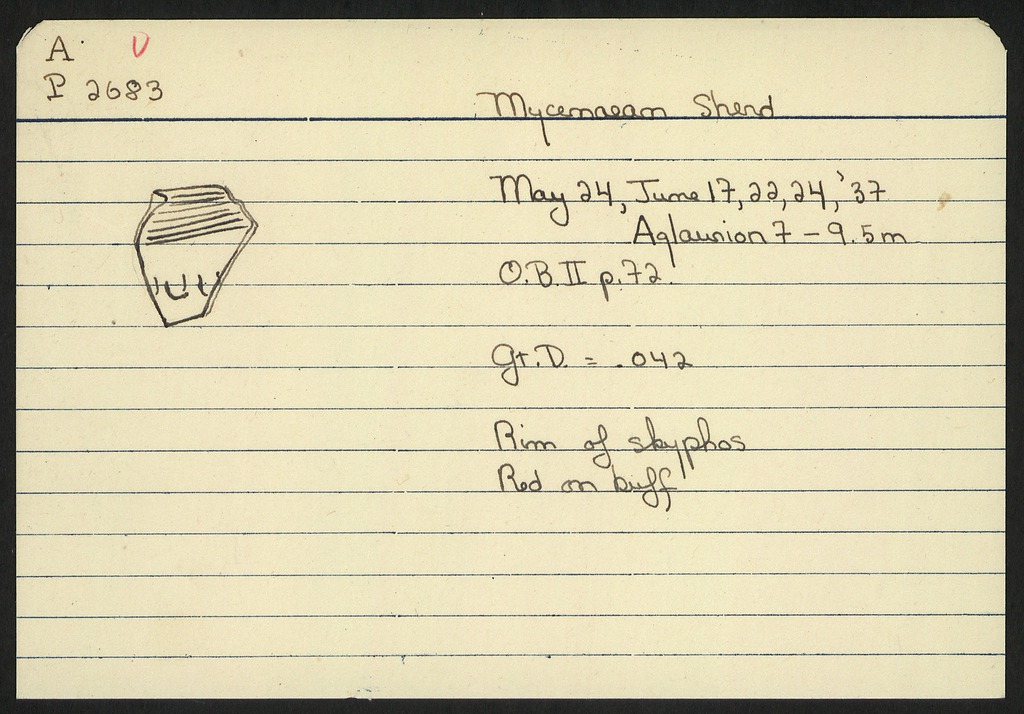 A V
P 2683
Mycenaean Sherd
May 24, June 17, 22, 24, '37
Aglaurion 7 - 9.5m
O.B. II p. 72.
Gr. D. = .042
Rim of skyphos
Red on buff